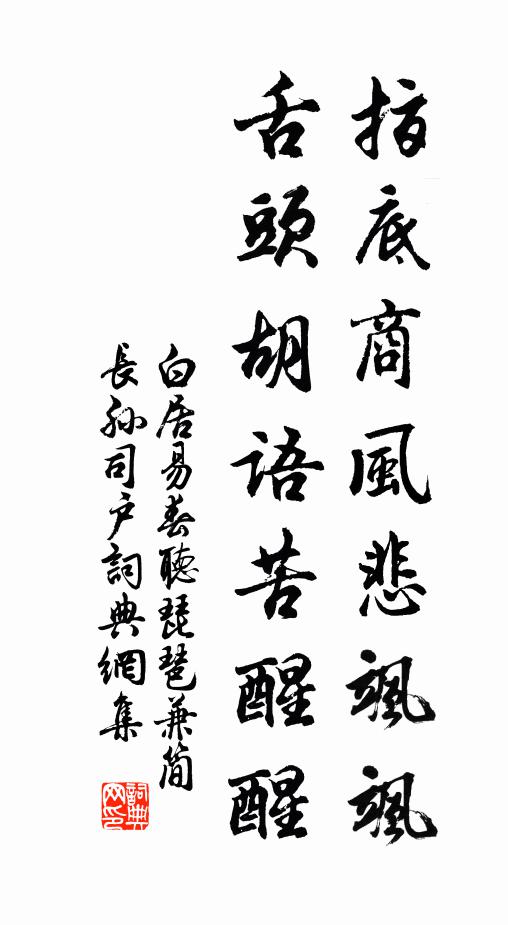 指底商風悲颯颯
舌頭胡語苦醒醒
白居易春聽琵琶兼简
長孙司户詞典網集
詞典
网印